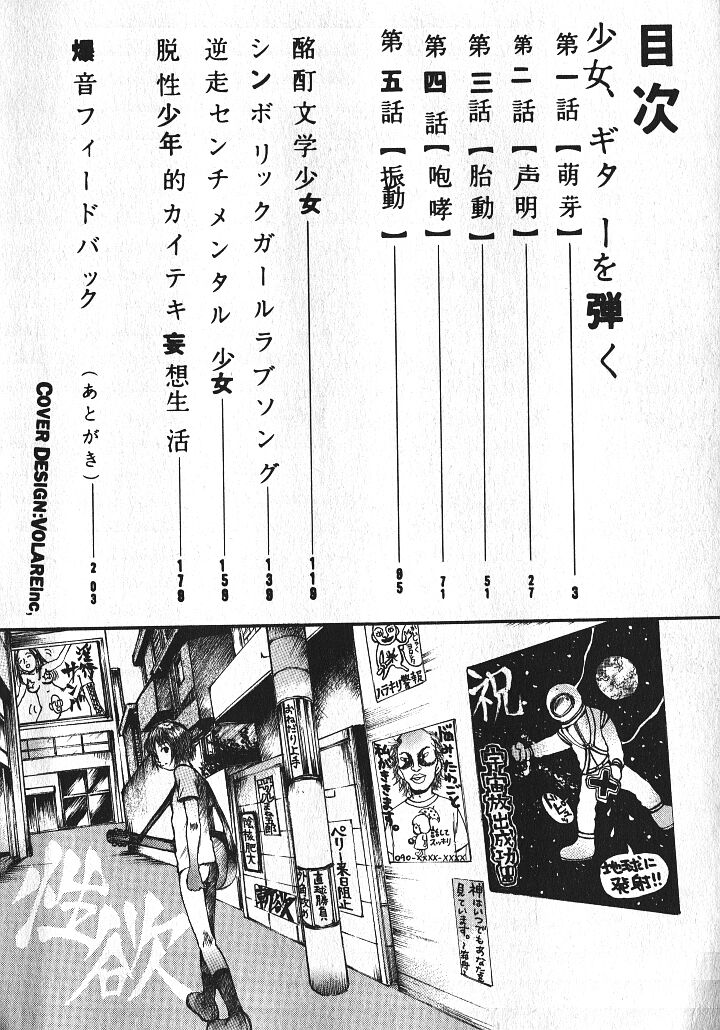 目次
少女、ギターを弾く
第一話【萌芽】 3
第二話【声明】 27
第三話【胎動】 51
第四話【咆哮】 71
第五話【振動】 95
酩酊文学少女 119
シンボリックガールラブソング 139
逆走センチメンタル少女 159
脱性少年的カイテキ妄想生活 179
爆音フィードバック (あとがき) 203
COVER DESIGN:VOLAREInc,
祝
宇宙放出成功
地球に
発射!!
ハラキリ警報
悩みたらごと
私がききます。
話して
スッキリ
090-XXXX-XXXX
神はいつでもあなたを
見ています。
おねだり上手
ペリー来日阻止
直球勝負
外角攻め
陰核肥大
性欲